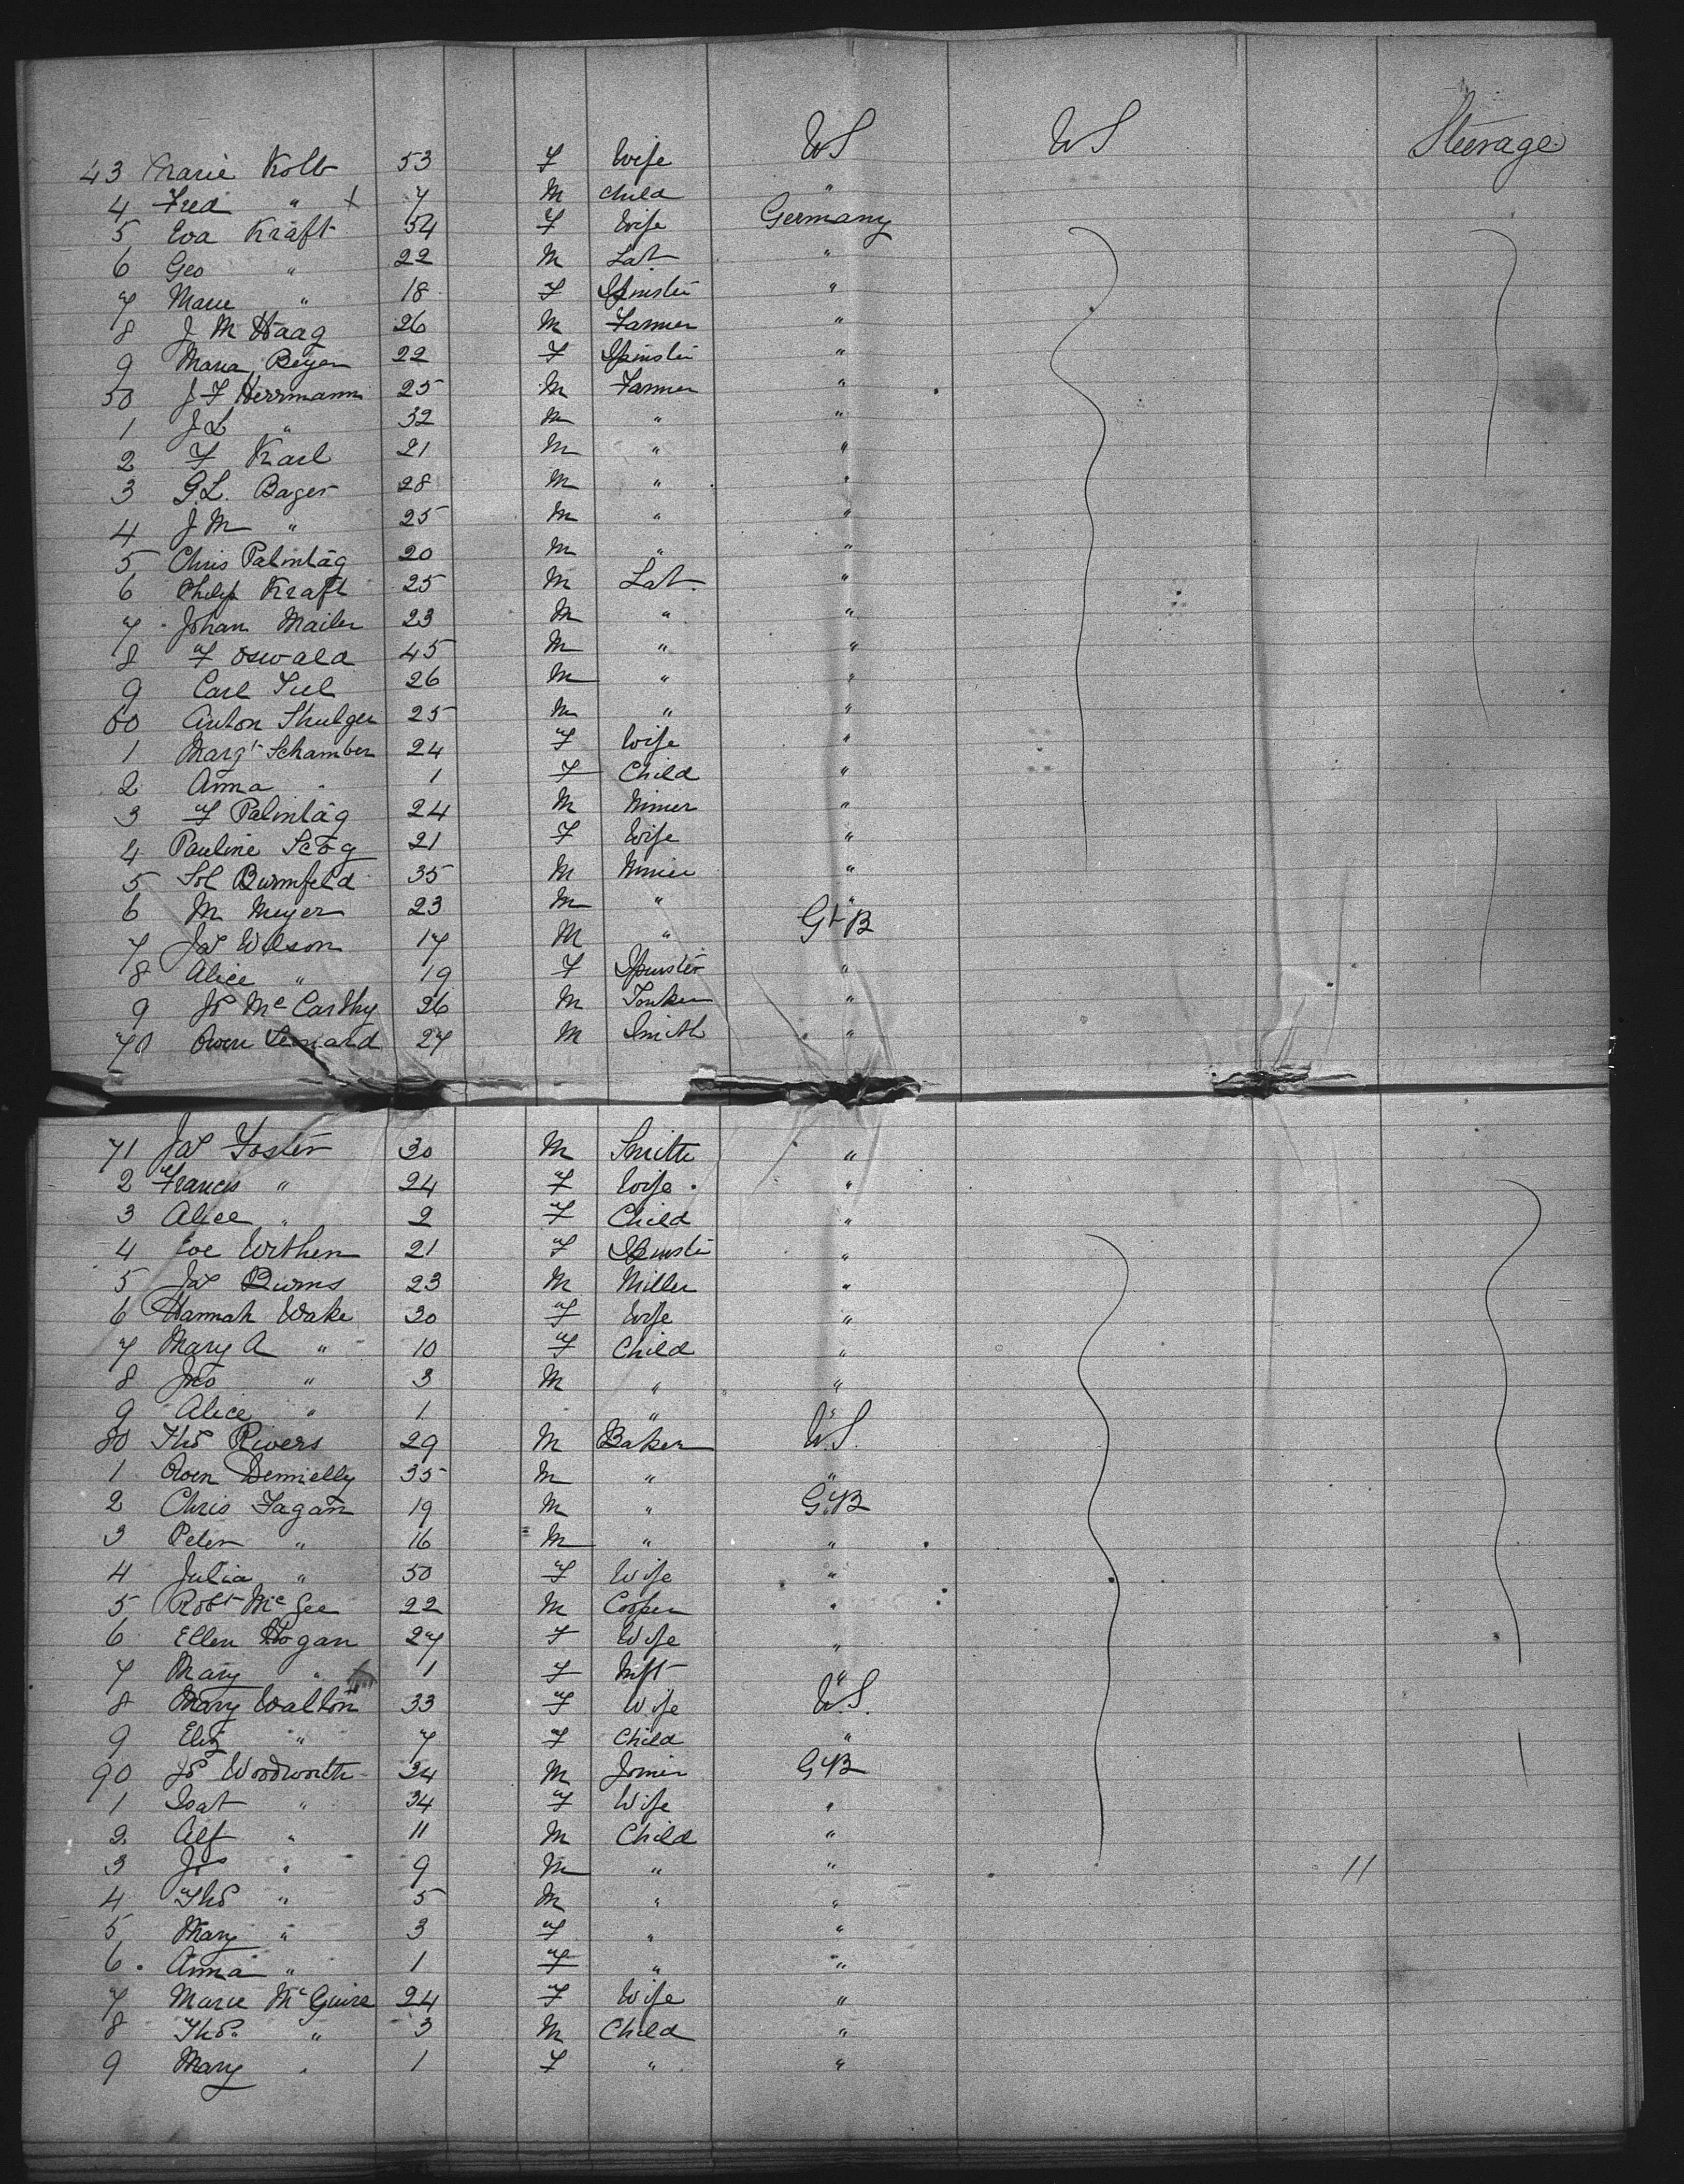 43 Marie Kolb 53 F Wife US US Steerage
4 Fred " X 7 M Child "
5 Eva Kraft 54 F Wife Germany
6 Geo " 22 M Lab "
7 Marie " 18 F Spinster "
8 J M Haag 26 M Farmer "
9 Maria Beyer 22 F Spinster "
50 J F Herrmann 25 M Farmer "
1 J L " 32 M " "
2 F Karl 21 M " "
3 G.L. Bager 28 M " "
4 J M " 25 M " "
5 Chris Palmtag 20 M " "
6 Philip Kraft 25 M Lab. "
7 Johan Mailer 23 M " "
8 F Oswald 45 M " "
9 Carl 26 M " "
60 Anton 25 M " "
1 Margt Schamber 24 F Wife "
2 Anna " 1 F Child "
3 F Palmtag 24 M Miner "
4 Pauline 21 F Wife "
5 Sol 35 M Miner "
6 M Meyer 23 M " "
7 Jas Wilson 17 M " Gt B
8 Alice " 19 F Spinster "
9 Js McCarthy 26 M "
70 Owen Lennard 27 M Smith "
71 Jas Foster 30 M Smith "
2 Francis " 24 F Wife "
3 Alice " 2 F Child "
4 21 F Spinster "
5 Jas Burns 23 M Miller "
6 Hannah Wake 30 F Wife "
7 Mary A " 10 F Child "
8 Jno " 3 M " "
9 Alice " 1 " "
80 Thos Rivers 29 M Baker U.S.
1 Owen 35 M " "
2 Chris Fagan 19 M " G B
3 Peter " 16 M " "
4 Julia " 50 F Wife "
5 Robt McGee 22 M Cooper "
6 Ellen Hogan 27 F Wife "
7 Mary " 1 F Inft "
8 Mary Walton 33 F Wife U.S.
9 Eliz " 7 F Child "
90 Js Woodworth 34 M Joiner G B
1 " 34 F Wife "
2 Alf " 11 M Child "
3 Js " 9 M " " 11
4 Thos " 5 M " "
5 Mary " 3 F " "
6 Anna " 1 F " "
7 Marie McGuire 24 F Wife "
8 Thos " 3 M Child "
9 Mary " 1 F " "